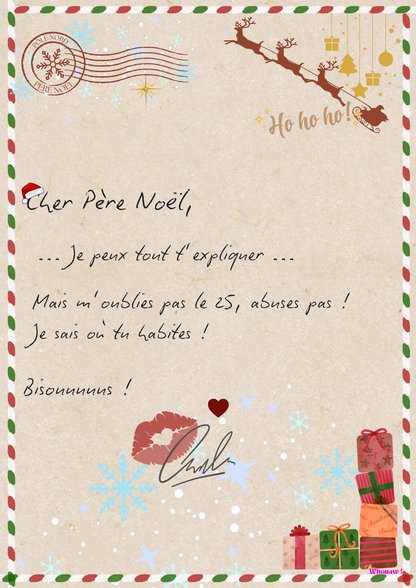 PÔLE NORD
PÈRE NOËL
Ho ho ho!
Cher Père Noël,
... Je peux tout t'expliquer ...
Mais m'oublies pas le 25, abuses pas !
Je sais où tu habites !
Bisouuuuus !
Whouaw.!